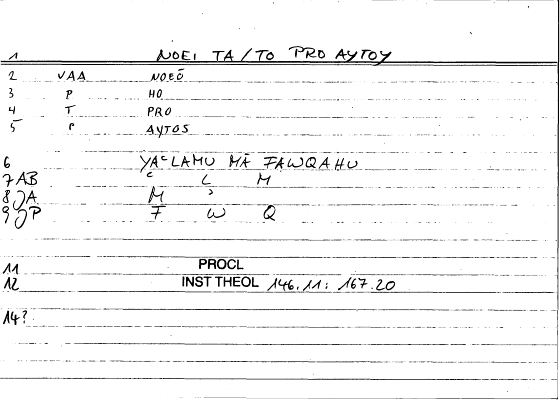 1 NOEI TA/TO PRO AYTOY
2 VAA NOEŌ
3 P HO
4 T PRO
5 P AYTOS
6 YAᶜLAMU MĀ FAWQAHU
7 AB ᶜ L M
8 JA M ʾ
9 JP F W Q
11 PROCL
12 INST THEOL 146.11: 167.20
14?